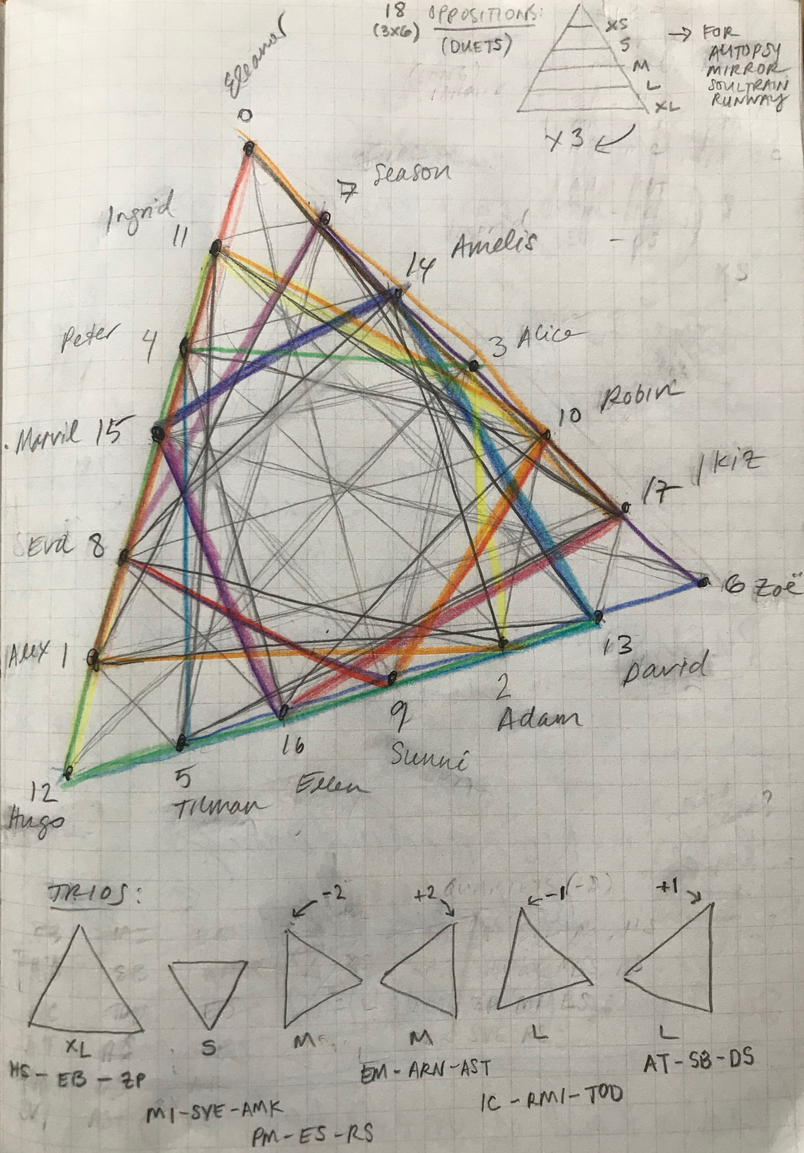 18 OPPOSITIONS:
(3x6) (DUETS)
XS
S
M
L
XL
→ FOR
AUTOPSY
MIRROR
SOULTRAIN
RUNWAY
x3
Eleanor
0
7 Season
Ingrid
11
14 Amelis
Peter 4
3 Alice
10 Robin
15
17
8
6 Zoë
Alex 1
13
David
2
Adam
9
Sunni
16
Ellen
5
Tilman
12
Hugo
TRIOS:
-2
+2
-1
+1
XL
S
M
M
L
L
HS - EB - ZP
MI-SVE-AMK
PM-ES-RS
EM-ARN-AST
IC-RMI-TOD
AT-SB-DS